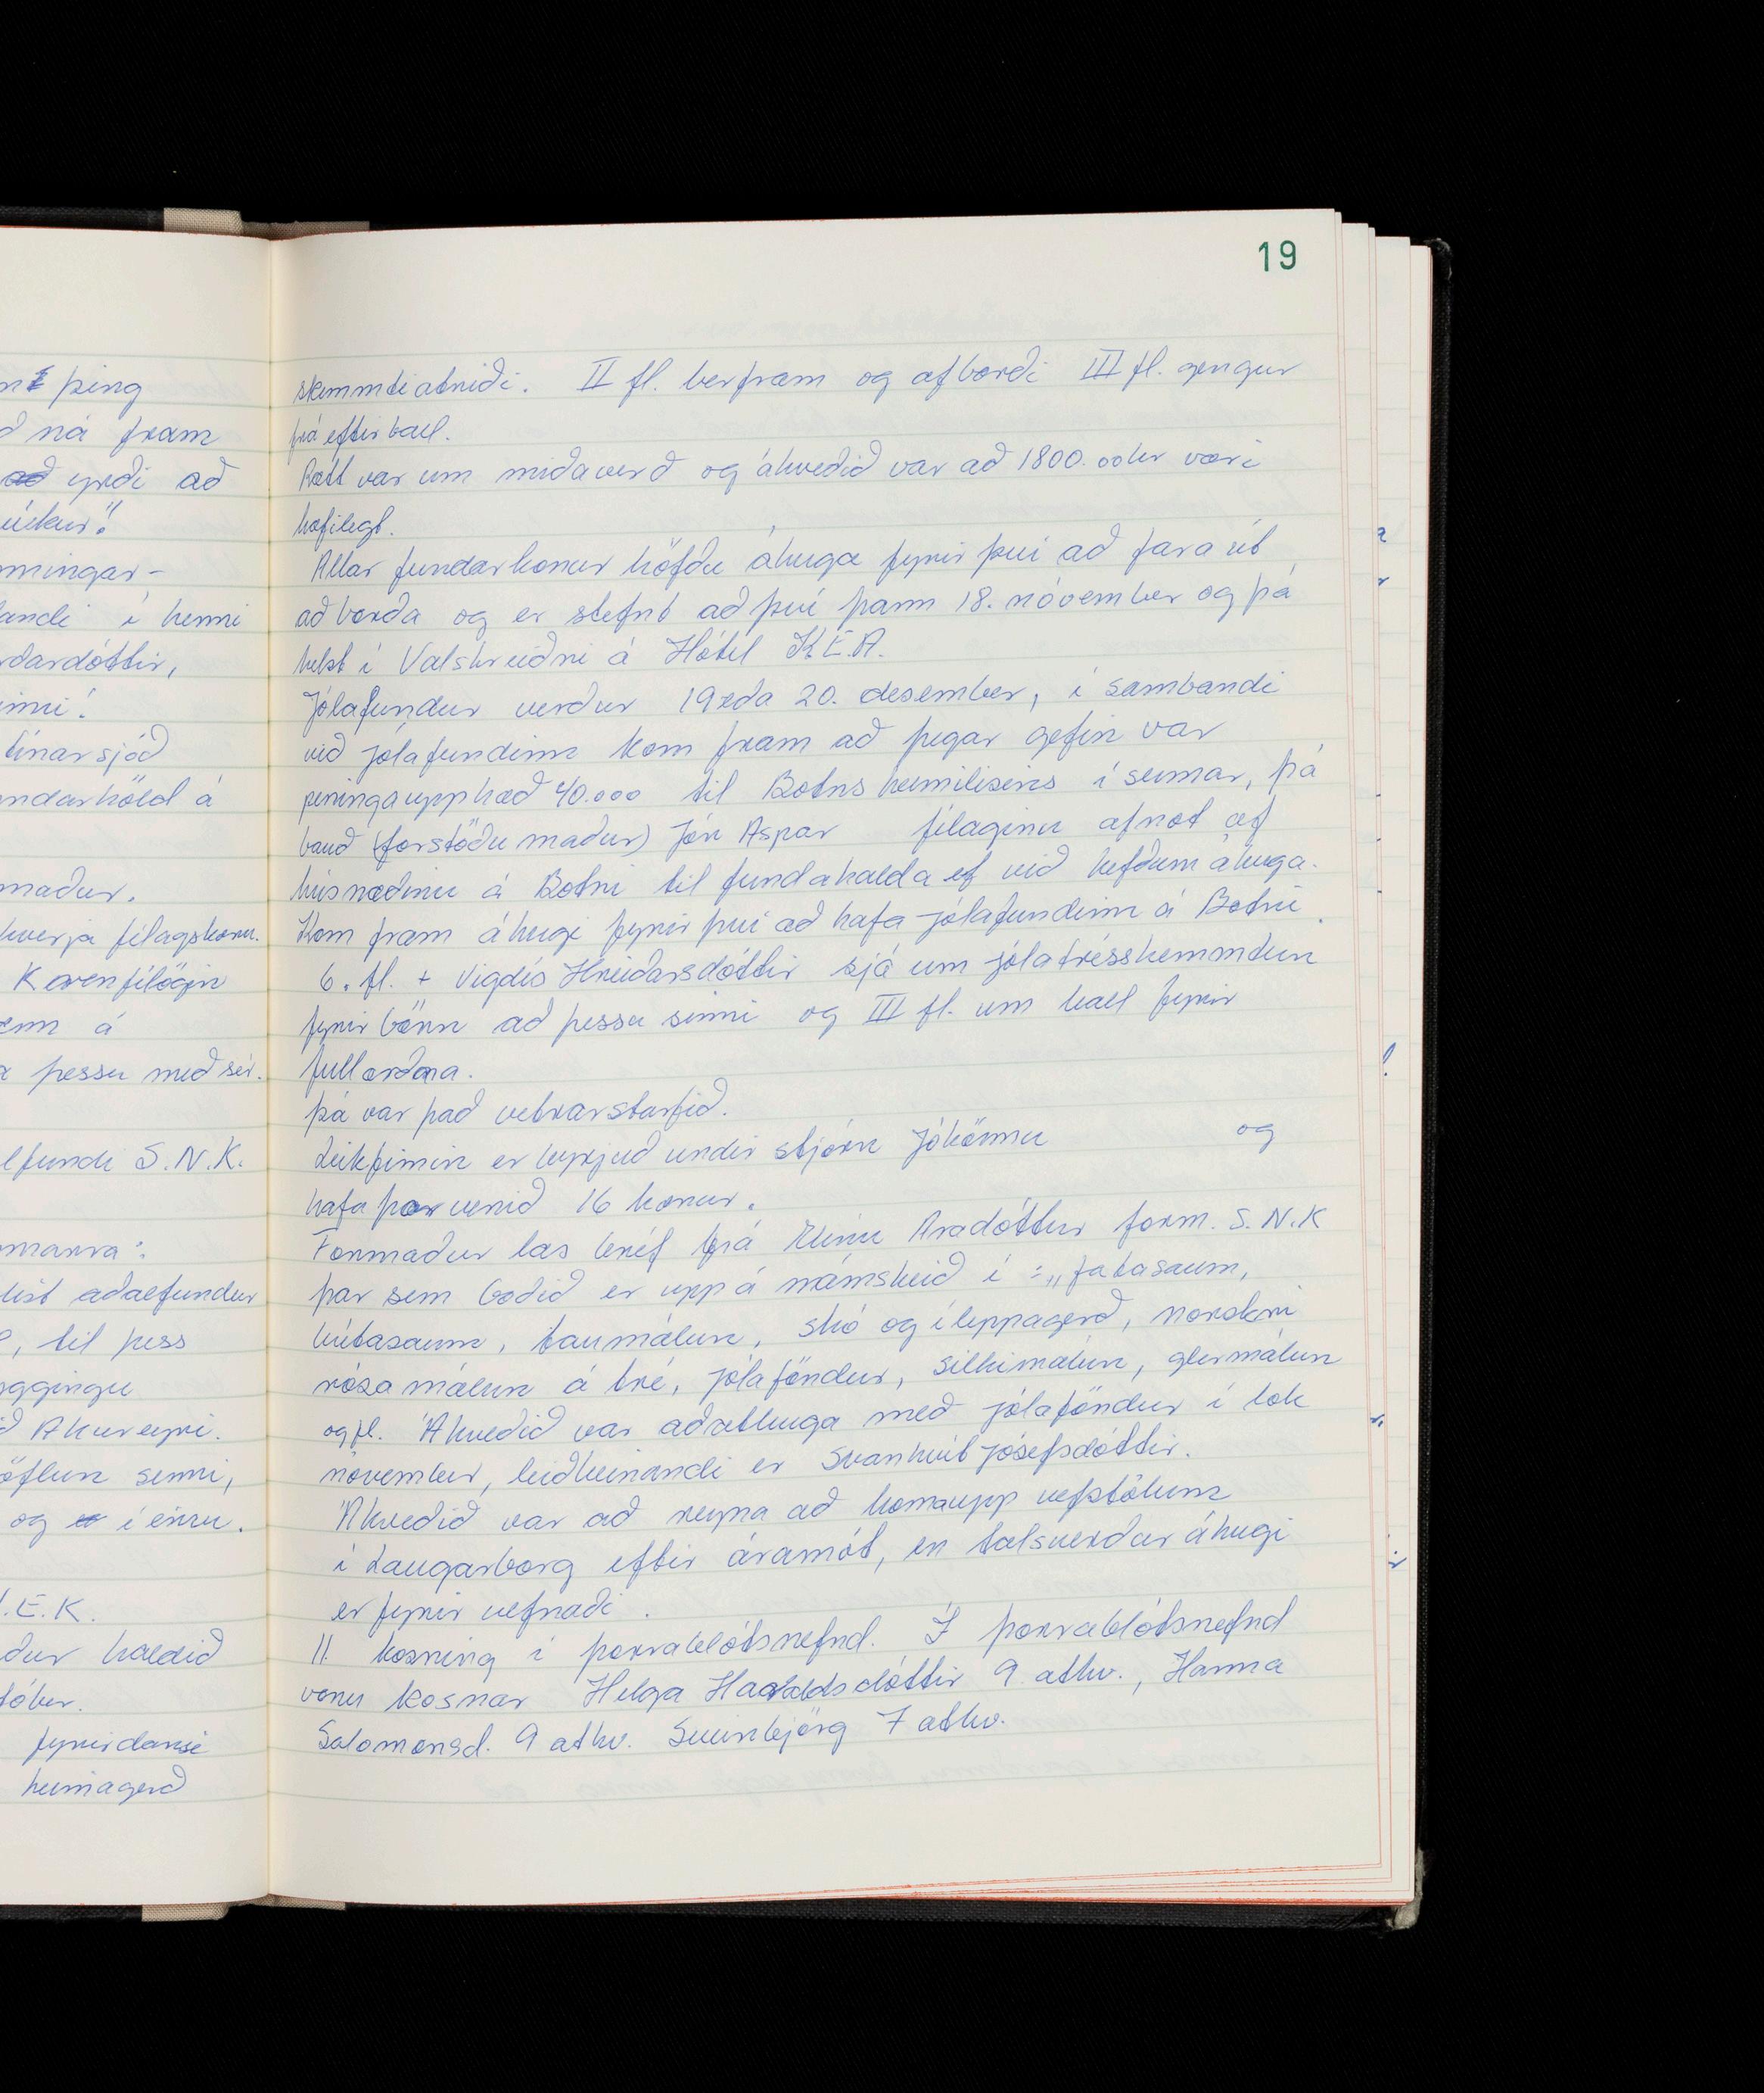 19
n I þing
ð ná fram
yrði að
mingar-
andi í henni
rðardóttir,
inni!
línarsjóð
ndarhöld á
maður.
hverja félagskonu.
Kvenfélögin
enn á
þessu með sér.
lfundi S.N.K.
omarra:
list aðalfundur
, til þess
yggingu
ð Akureyri.
öflun sinni,
og í einu.
.E.K.
ður haldið
tóber.
fyrir dansi
heimagerð
skemmtiatriði. II fl. ber fram og af borði III fl. gengur
frá eftir ball.
Rætt var um miðaverð og ákveðið var að 1800.oo kr væri
hæfilegt.
Allar fundarkonur höfðu áhuga fyrir því að fara út
að borða og er stefnt að því þann 18. nóvember og þá
helst í Valskreiðni á Hótel K.E.A.
Jólafundur verður 19 eða 20. desember, í sambandi
við jólafundinn kom fram að þegar gefin var
peningaupphæð 40.000 til Botns heimilisins í sumar, þá
bauð (forstöðumaður) Jón Aspar félaginu afnot af
húsnæðinu á Botni til fundahalda ef við hefðum áhuga.
Kom fram áhugi fyrir því að hafa jólafundinn á Botni.
6. fl. + Vigdís Hreiðarsdóttir sjá um jólatrésskemmtun
fyrir börn að þessu sinni og III fl. um ball fyrir
fullorðna.
Þá var það vetrarstarfið.
Leikfimin er byrjuð undir stjórn Jóhönnu og
hafa þar verið 16 konur.
Formaður las bréf frá Elínu Aradóttur form. S.N.K
þar sem boðið er upp á námskeið í :„fatasaum,
bútasaum, taumálun, skó og íleppagerð, norskri
rósamálun á tré, jólaföndur, silkimálun, glermálun
og fl. Ákveðið var að athuga með jólaföndur í lok
nóvember, leiðbeinandi er Svanhvít Jósefsdóttir.
Ákveðið var að reyna að koma upp vefstólum
í Laugarborg eftir áramót, en talsverður áhugi
er fyrir vefnaði.
11. kosning í þorrablótsnefnd. Í þorrablótsnefnd
voru kosnar Helga Haraldsdóttir 9 atkv., Hanna
Salomonsd. 9 atkv. Sveinbjörg 7 atkv.